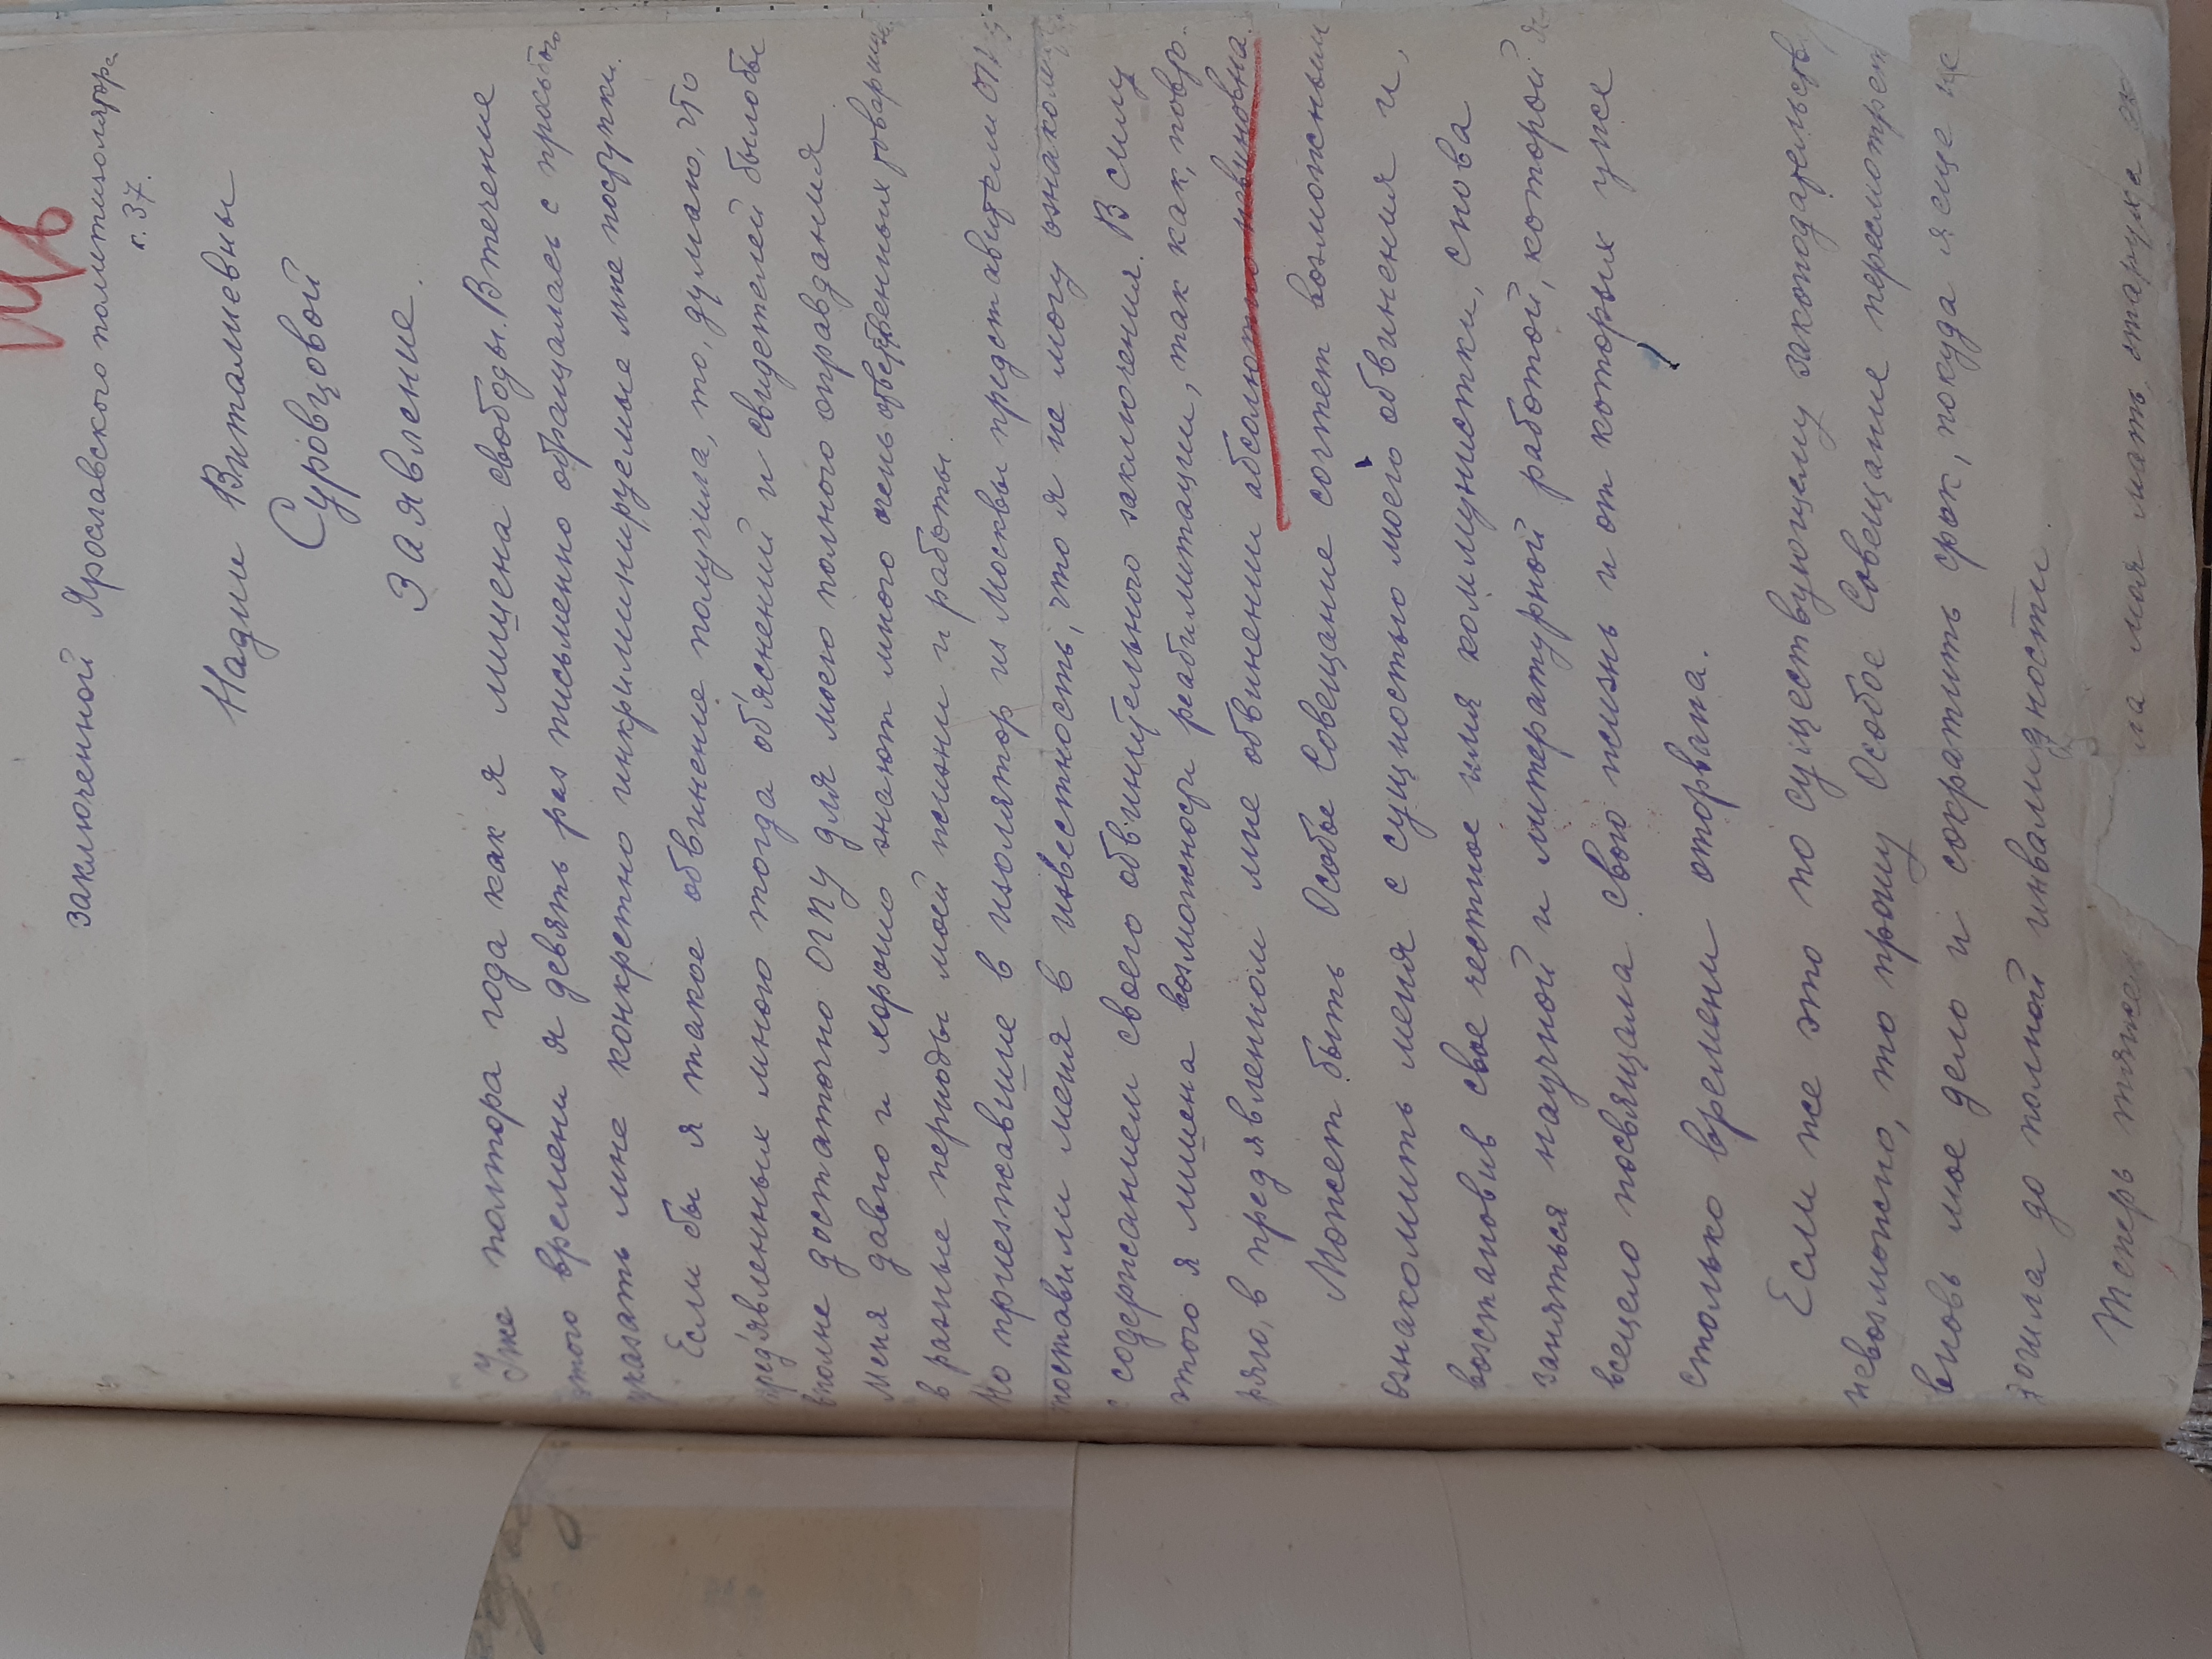 заключенной Ярославского политизолятора
к. 37.
Надии Виталиевны
Суровцовой
Заявление.
Уже полтора года как я лишена свободы. В течение
этого времени я девять раз письменно обращалась с просьбой
указать мне конкретно инкриминируемые мне поступки.
Если бы я такое обвинение получила, то, думаю, что
пред'явленных мною тогда об'яснений и свидетелей было бы
вполне достаточно ОГПУ для моего полного оправдания
Меня давно и хорошо знают много очень ответственных товарищей
в разные периоды моей жизни и работы.
Но приезжавшие в изолятор из Москвы представители ОГПУ
поставили меня в известность, что я не могу ознакомиться
с содержанием своего обвинительного заключения. В силу
этого я лишена возможности реабилитации, так как, повто-
ряю, в пред'явленном мне обвинении абсолютно невиновна.
Может быть Особое Совещание сочтет возможным
ознакомить меня с сущностью моего обвинения и,
возстановив свое честное имя коммунистки, снова
заняться научной и литературной работой, которой я
всецело посвящала свою жизнь и от которых уже
столько времени оторвана.
Если же это по существующему законодательству
невозможно, то прошу Особое Совещание пересмотреть
вновь мое дело и сократить срок, покуда я еще не
дошла до полной инвалидности.
Теперь тяжело ла моя мать старуха